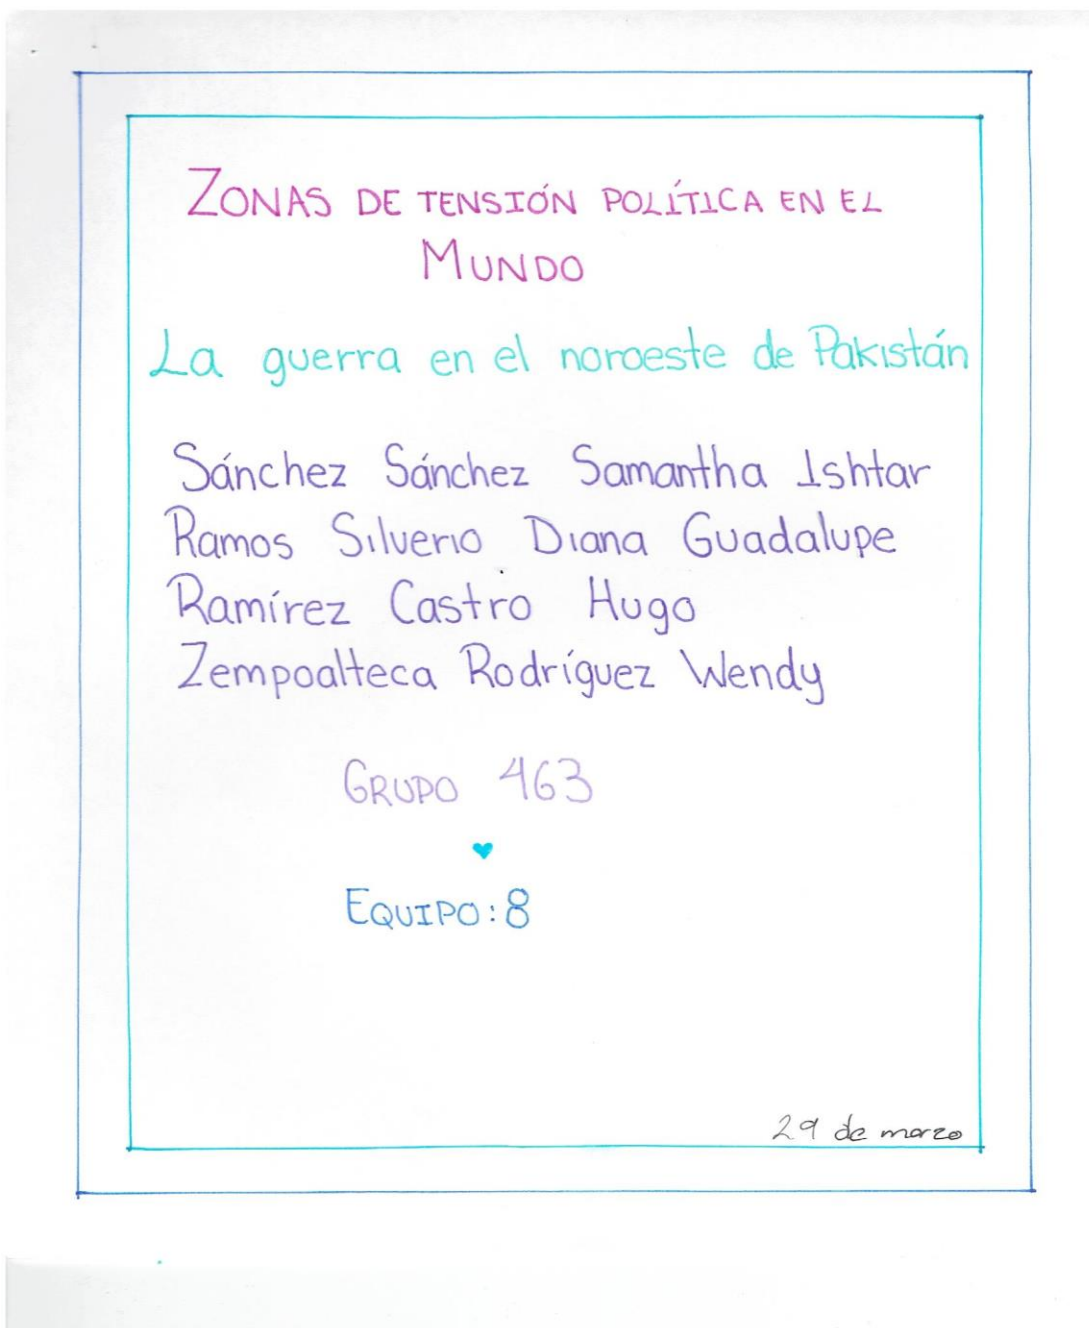 ZONAS DE TENSIÓN POLÍTICA EN EL
MUNDO
La guerra en el noroeste de Pakistán
Sánchez Sánchez Samantha Ishtar
Ramos Silverio Diana Guadalupe
Ramírez Castro Hugo
Zempoalteca Rodríguez Wendy
GRUPO 463
EQUIPO: 8
29 de marzo